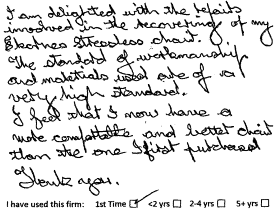 I am delighted with the repairs
involved in the recovering of my
Ekornes Stressless chair.
The standard of workmanship
and materials used are of a
very high standard.
I feel that I now have a
more comfortable and better chair
than the one I first purchased
Thanks again.
I have used this firm: 1st Time ☑ <2 yrs ☐ 2-4 yrs ☐ 5+ yrs ☐